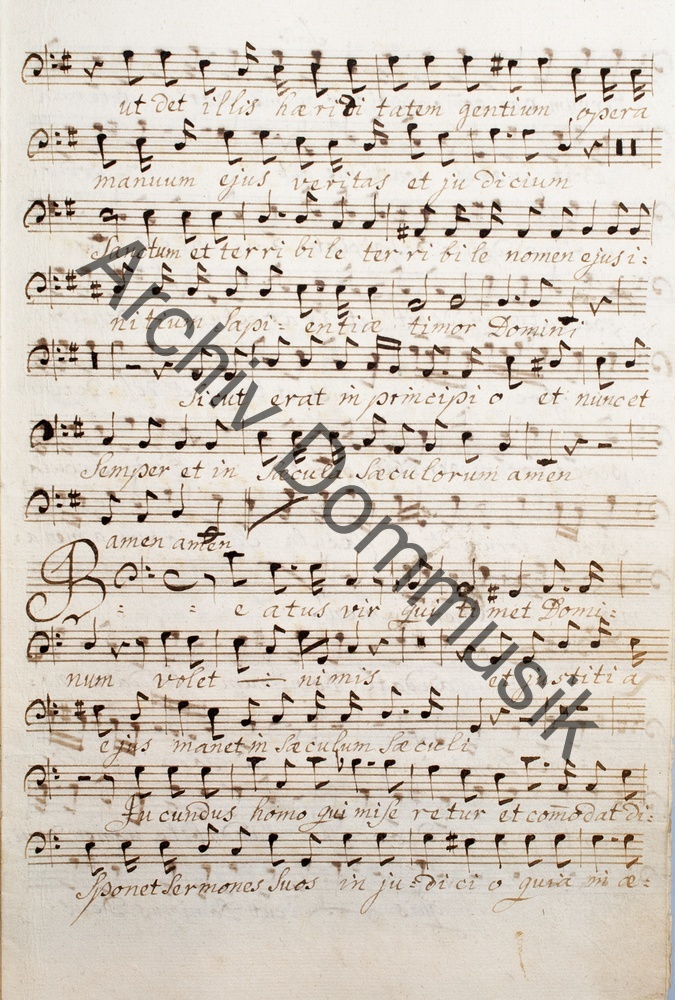 ut det illis hæredi tatem gentium opera
manuum ejus veritas et ju dicium
Sanctum et ter ri bi le ter ri bi le nomen ejus i:
nitium sapi- entiæ timor Domini
Sicut erat in principi o et nunc et
Semper et in sæcula sæculorum amen
amen amen
B - : : e atus vir qui ti met Domi-
num volet ni mis et justiti a
ejus manet in sæculum sæculi
Ju cundus homo qui mise re tur et comodat di:
Sponet sermones suos in ju-di ci o quia in æ-
Archiv Dommusik